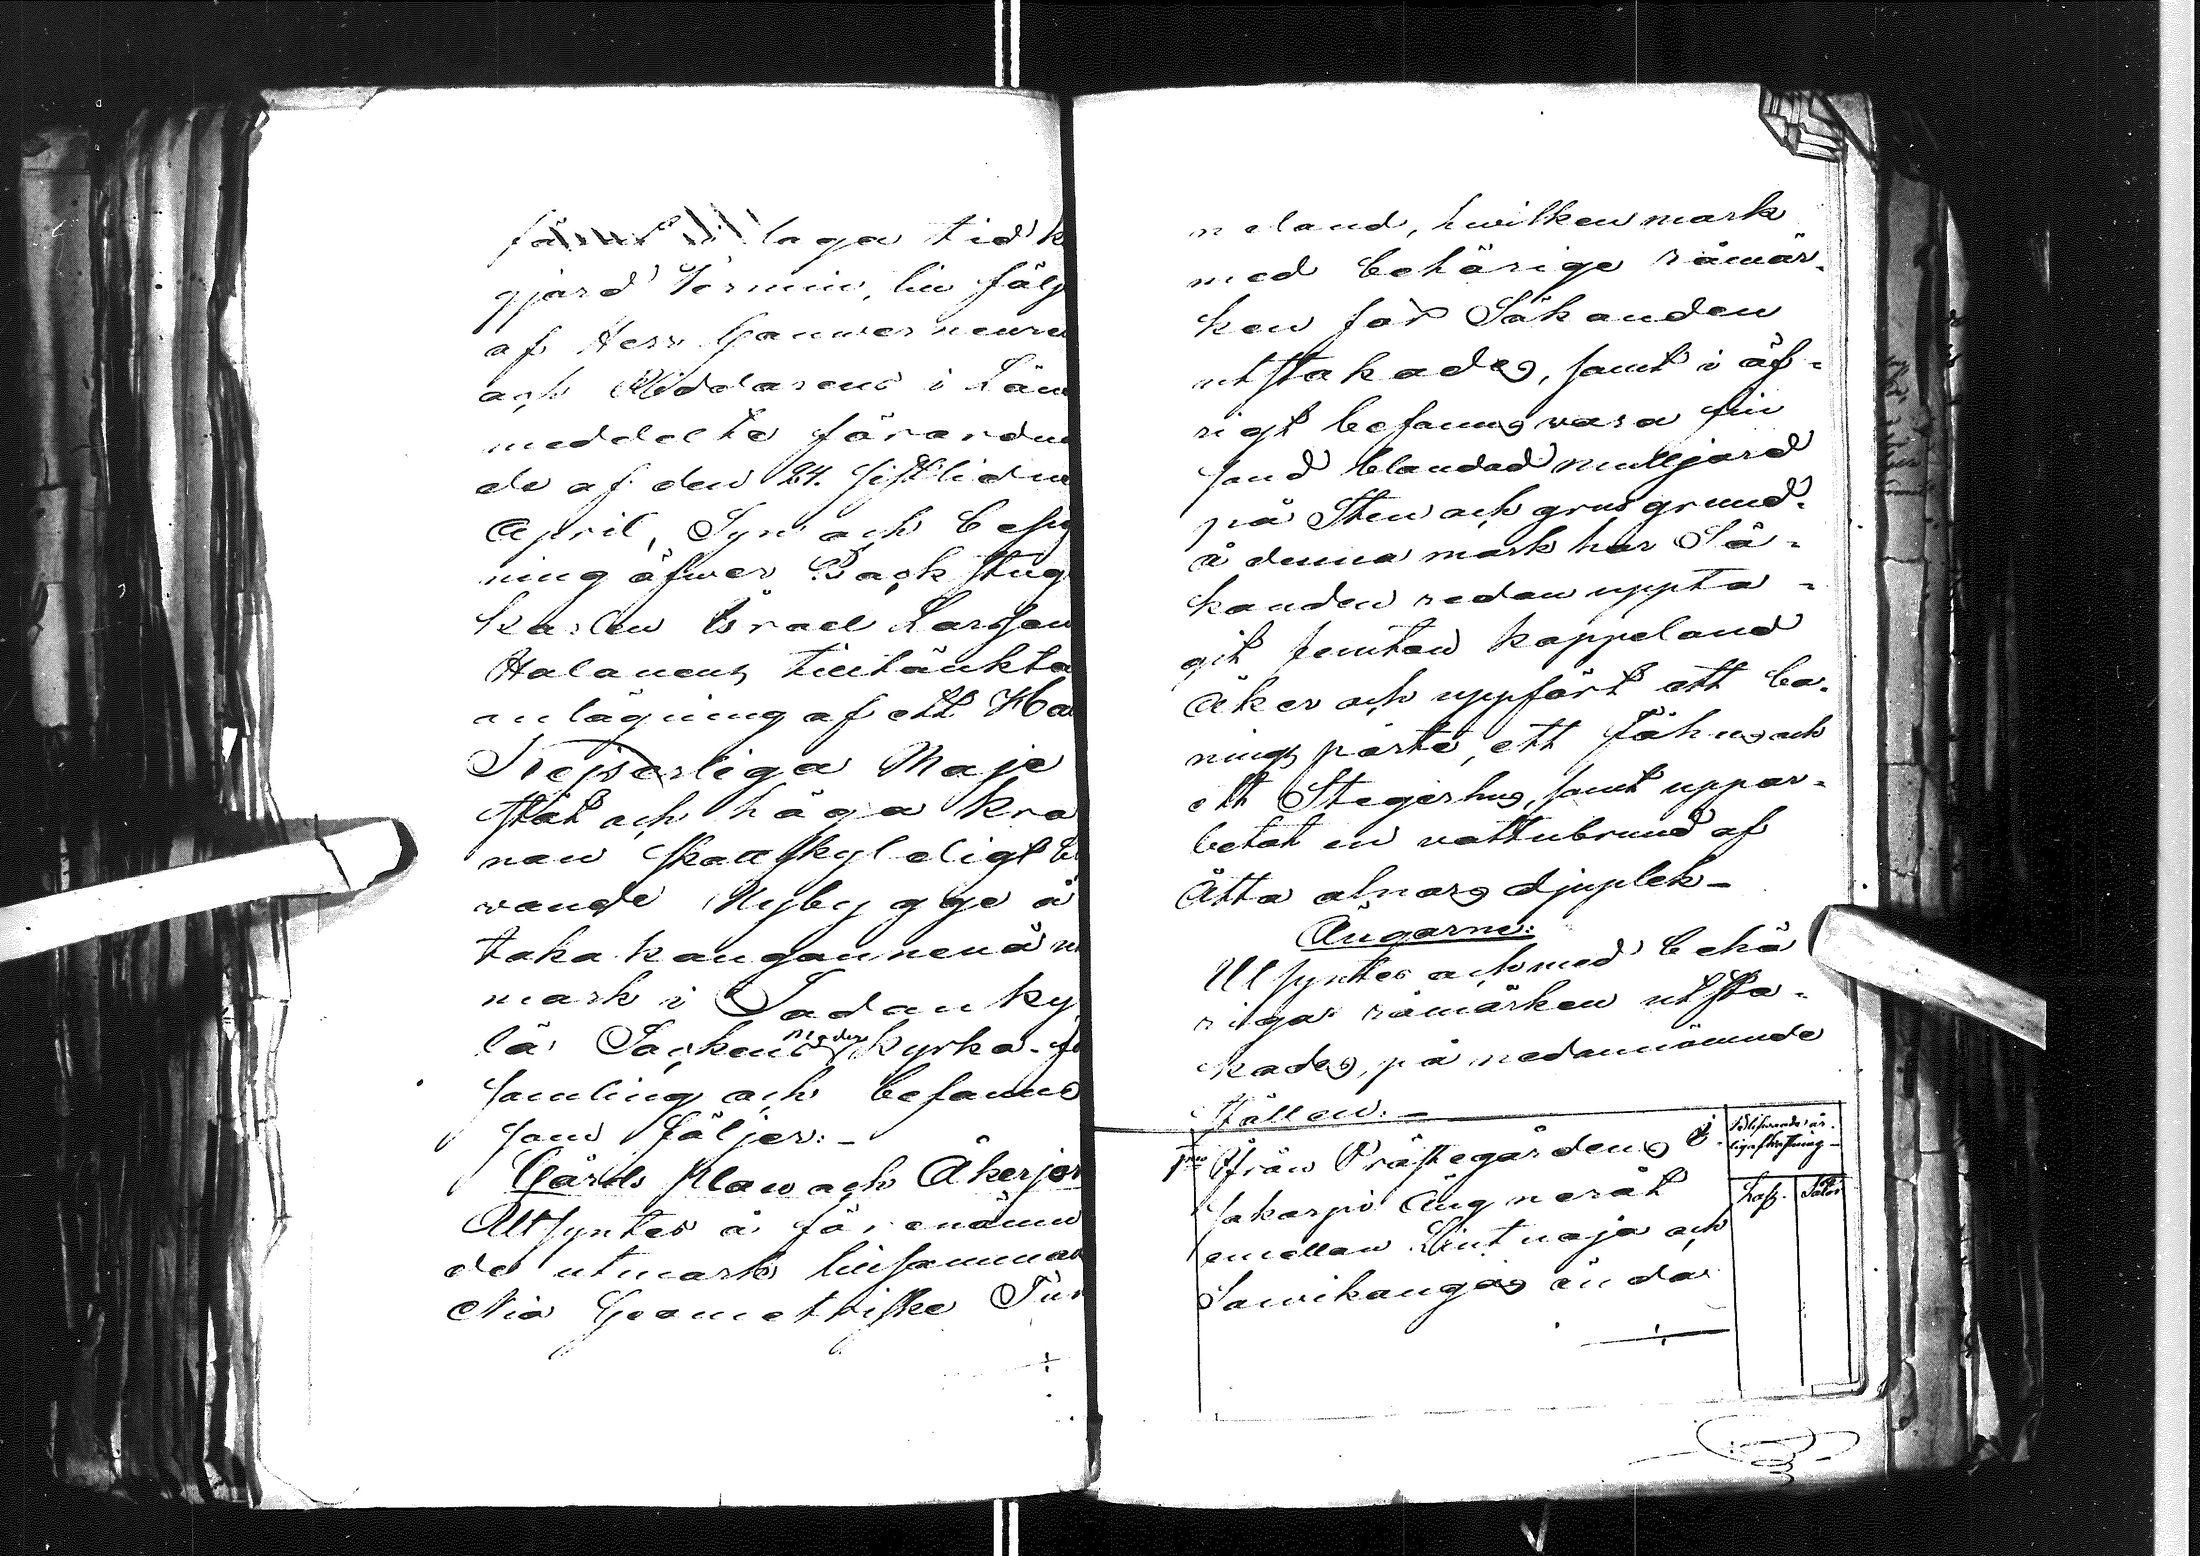 laga tid k
gjord Termin, lin fälj
af Herr Gouverneure
och Riddarens i Län
meddelte förordna
de af den 24. sistlidne
April, Syn och besig
ning öfwer Backstug
karlen Israel Larsson
Halanens tilltänkta
anlägning af ett Ha
Kejserliga Maje
stät och höga Kro
nan skattskyldigt b
wande Nybygge å
taka kangannenä m
mark i Sodanky
lä Sockens moder kyrko-f
samling och befanns
som följer:-
Gårds Plan och Åkerjor
Altsyntes å förenämn
de utmark tillsammas
Nio Geometriske Tun
neland, hwilken mark
med behörige råmär-
ken för Sökanden
utstakades, samt i öf-
rigt befanns wara fin
sand blandad mulljord
på Sten och grusgrund.
å denna mark har Sö-
kanden redan uppta-
git femton kappeland
Åker och uppfört ett bo-
nings pörte, ett Fähus och
ett Stegerhus, samt uppar-
betat en vattubrund af
Åtta alnars djuplek-
Ängarne:
Utsyntes och med behö
riga råmärken utsta-
kades, på nedannämnde
Ställen:-
1mo Ifrån Prästegårdens i
Jakarpi Äng neråt
emellan Lintuoja och
Sawikangas ända